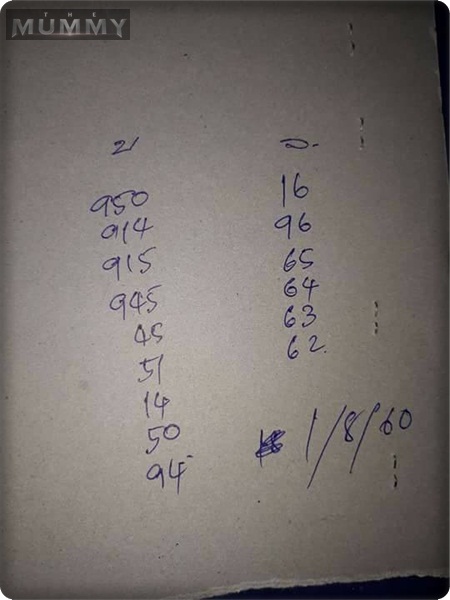 THE
MUMMY
950
914
915
945
45
51
14
50
94
16
96
65
64
63
62.
1/8/60